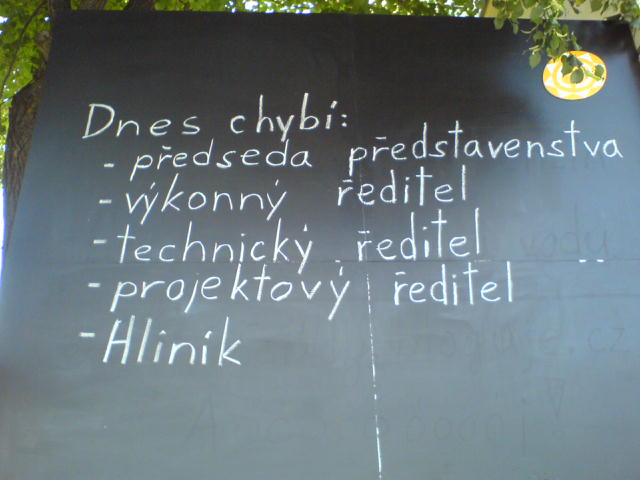 Dnes chybí:
- předseda představenstva
- výkonný ředitel
- technický ředitel
- projektový ředitel
- Hliník
vodu